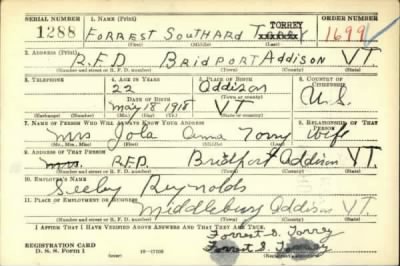 SERIAL NUMBER 1. NAME (Print) ORDER NUMBER
1288 FORREST SOUTHARD TORREY 1699
(First) (Middle) (Last)
2. ADDRESS (Print)
R.F.D. BRIDPORT ADDISON VT.
(Number and street or R. F. D. number) (Town) (County) (State)
3. TELEPHONE 4. AGE IN YEARS 5. PLACE OF BIRTH 6. COUNTRY OF CITIZENSHIP
22 Addison
DATE OF BIRTH (Town or county)
May 18 1918 VT U.S.
(Exchange) (Number) (Mo.) (Day) (Yr.) (State or country)
7. NAME OF PERSON WHO WILL ALWAYS KNOW YOUR ADDRESS 8. RELATIONSHIP OF THAT PERSON
Mrs Iola Anna Torry Wife
(Mr., Mrs., Miss) (First) (Middle) (Last)
9. ADDRESS OF THAT PERSON
R.F.D. Bridport Addison VT.
(Number and street or R. F. D. number) (Town) (County) (State)
10. EMPLOYER'S NAME
Seeley Reynolds
11. PLACE OF EMPLOYMENT OR BUSINESS
Middlebury Addison VT.
(Number and street or R. F. D. number) (Town) (County) (State)
I AFFIRM THAT I HAVE VERIFIED ABOVE ANSWERS AND THAT THEY ARE TRUE.
Forrest S. Torrey
REGISTRATION CARD
D. S. S. Form 1 (over) 16-17105 Forrest S. Torrey